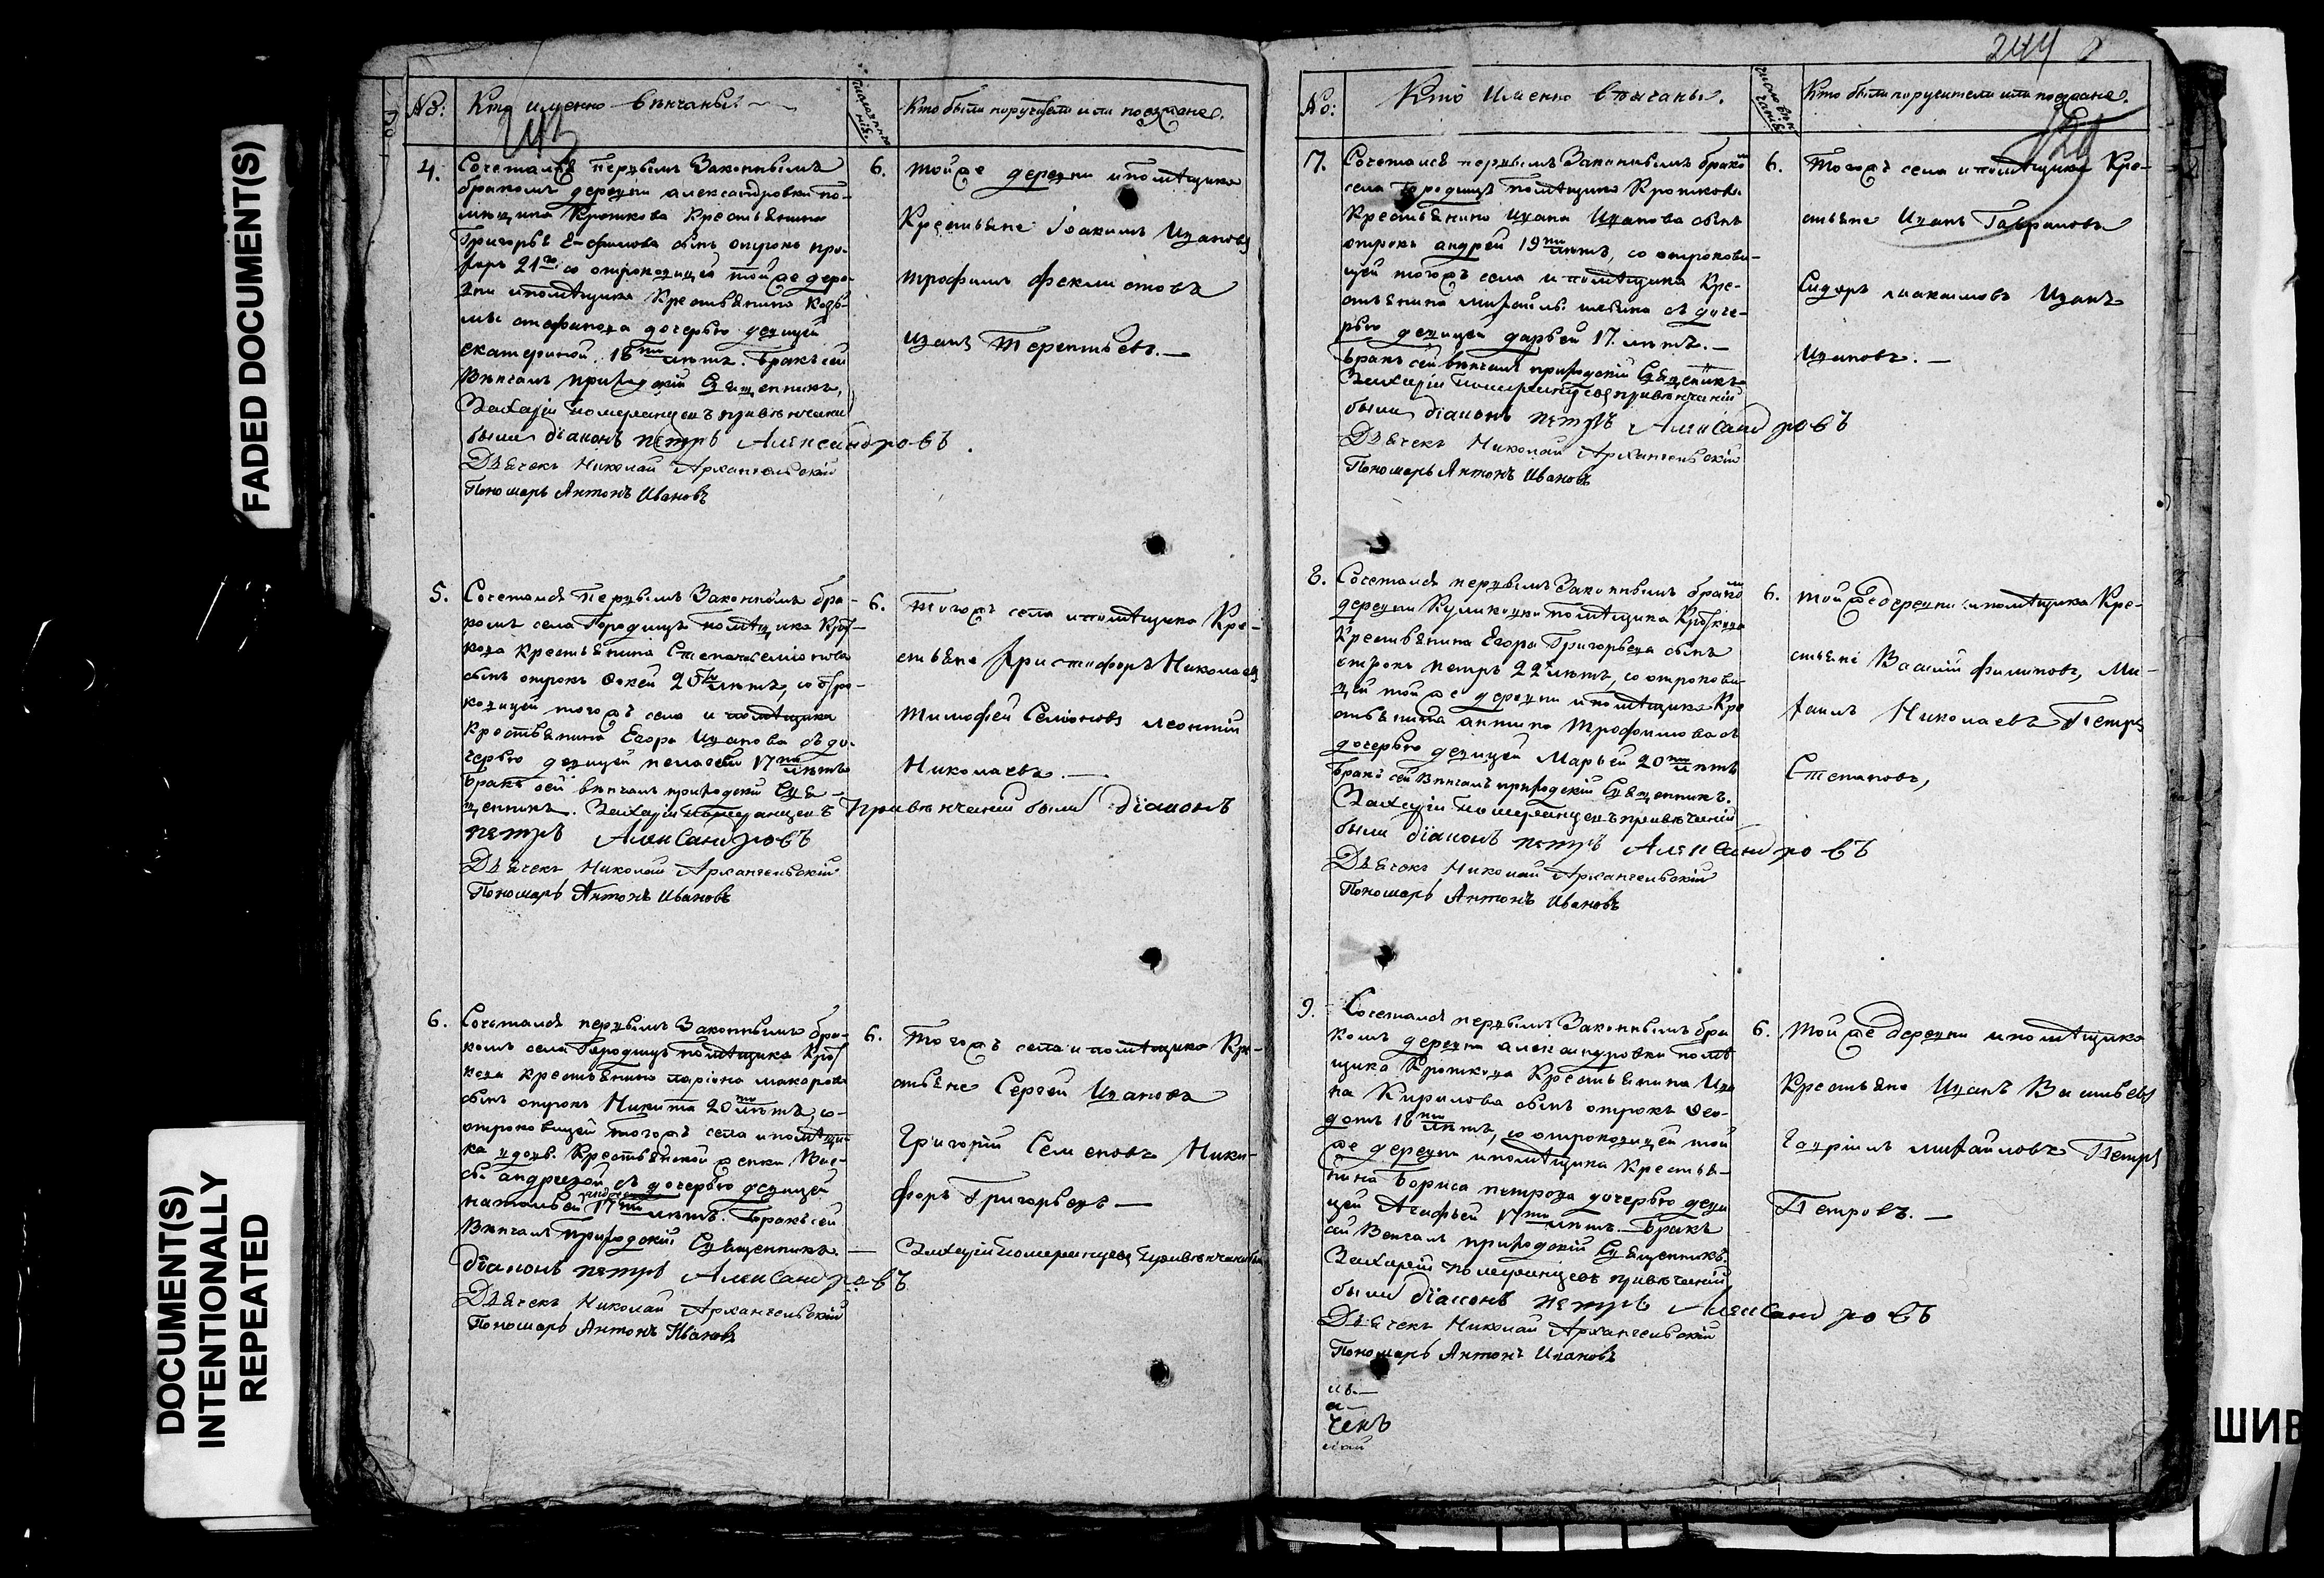 FADED DOCUMENT(S)
DOCUMENT(S)
INTENTIONALLY
REPEATED
№:
Кто именно венчаны
Кто были поручители или поезжане.
4.
Сочетался первым Законным
браком деревни александровки по-
мещика Кроткова Крестьянина
Григорья сынъ отрокъ
21го со отроковицей той же дере-
вни и помещика Крестьянина Козь-
мы дочерью девицей
екатериной 18ти летъ. Бракъ сей
Венчалъ приходский Священникъ,
Захарiй Померанцевъ привенчании
были дiаконъ петръ Александровъ.
Дьячекъ Николай Архангельскiй
Пономарь Антонъ Ивановъ
6.
той же деревни и помещика
Крестьяне Iоакимъ Ивановъ
трофимъ феклистовъ
иванъ Терентьевъ. —
5.
Сочетался Первымъ Законнымъ бра-
комъ села Городищъ помещика Крот-
кова Крестьянина Степана семiонова
сынъ отрокъ Фокей летъ, со отро-
ковицей тогожъ села и помещика
Крестьянина Егора Иванова съ до-
черью девицей пелагеей 17ти летъ
Бракъ сей венчалъ приходскiй Свя-
щенникъ. Захарiй Померанцевъ привенчанiи были дiаконъ
петръ Александровъ
Дьячекъ Николай Архангельскiй
Пономарь Антонъ Ивановъ
6.
Тогожъ села и помещика Кре-
стьяне христофоръ Николаевъ
тимофей Семiоновъ леонтiй
Николаевъ. —
6.
Сочетался первымъ Законнымъ бра-
комъ села Городищъ помещика Крот
кова крестьянина ларiона макарова
сынъ отрокъ Никита 20ти летъ, со-
отроковицей тогожъ села и помещи-
ка вдовы Крестьянской женки
андреевой съ дочерью девицей
натальей 17ти летъ. Бракъ сей
Венчалъ Приходскiй Священникъ. — Захарiй Померанцевъ Привенчанiи
дiаконъ петръ Александровъ
Дьячекъ Николай Архангельскiй
Пономарь Антонъ Ивановъ
6.
Тогожъ села и помещика Кре-
стьяне Сергей Ивановъ
Григорiй Семеновъ Ники-
форъ Григорьевъ —
244
№:
Кто Именно венчаны.
Кто были поручители или поезжане.
7.
Сочетался первымъ Законнымъ бракомъ
села Городищъ помещика Кроткова
Крестьянина Ивана Иванова сынъ
отрокъ андрей 19ти летъ, со отрокови-
цей тогожъ села и помещика Кре-
стьянина михайлы съ доче-
рью девицей дарьей 17. летъ. —
Бракъ сей венчалъ приходскiй Священникъ
Захарiй Померанцевъ привенчанiи
были дiаконъ петръ Александровъ
Дьячекъ Николай Архангельскiй
Пономарь Антонъ Ивановъ
6.
Тогожъ села и помещика Кре-
стьяне Иванъ Гавриловъ
Сидоръ максимовъ Иванъ
Ивановъ. —
8.
Сочетался первымъ Законнымъ бракомъ
деревни Куликовки помещика Кроткова
Крестьянина Егора Григорьева сынъ
отрокъ петръ 22хъ летъ, со отрокови-
цей той же деревни и помещика Кре
стьянина антипа трофимова съ
дочерью девицей Марьей 20ти летъ
Бракъ сей Венчалъ приходскiй Священникъ.
Захарiй Померанцевъ привенчанiй
были дiаконъ петръ Александровъ
Дьячекъ Николай Архангельскiй
Пономарь Антонъ Ивановъ
6.
той же деревни и помещика Кре-
стьяне Василiй филиповъ, Ми-
хаилъ Николаевъ Петръ
Степановъ,
9.
Сочетался первымъ Законнымъ бра
комъ деревни александровки поме
щика Кроткова Крестьянина Ива
на Кирилова сынъ отрокъ Фео-
дотъ 18ти летъ, со отроковицей той
же деревни и помещика Крестья-
нина Бориса петрова дочерью деви
цей Агафьей 17ти летъ. Бракъ
сей Венчалъ приходскiй Священникъ.
Захарiй Померанцевъ привенчанiй
были дiаконъ петръ Александровъ
Дьячекъ Николай Архангельскiй
Пономарь Антонъ Ивановъ
6.
той же деревни и помещика
Крестьяне Иванъ Васильевъ
гаврiилъ михайловъ Петръ
Петровъ. —
чекъ
ШИВ